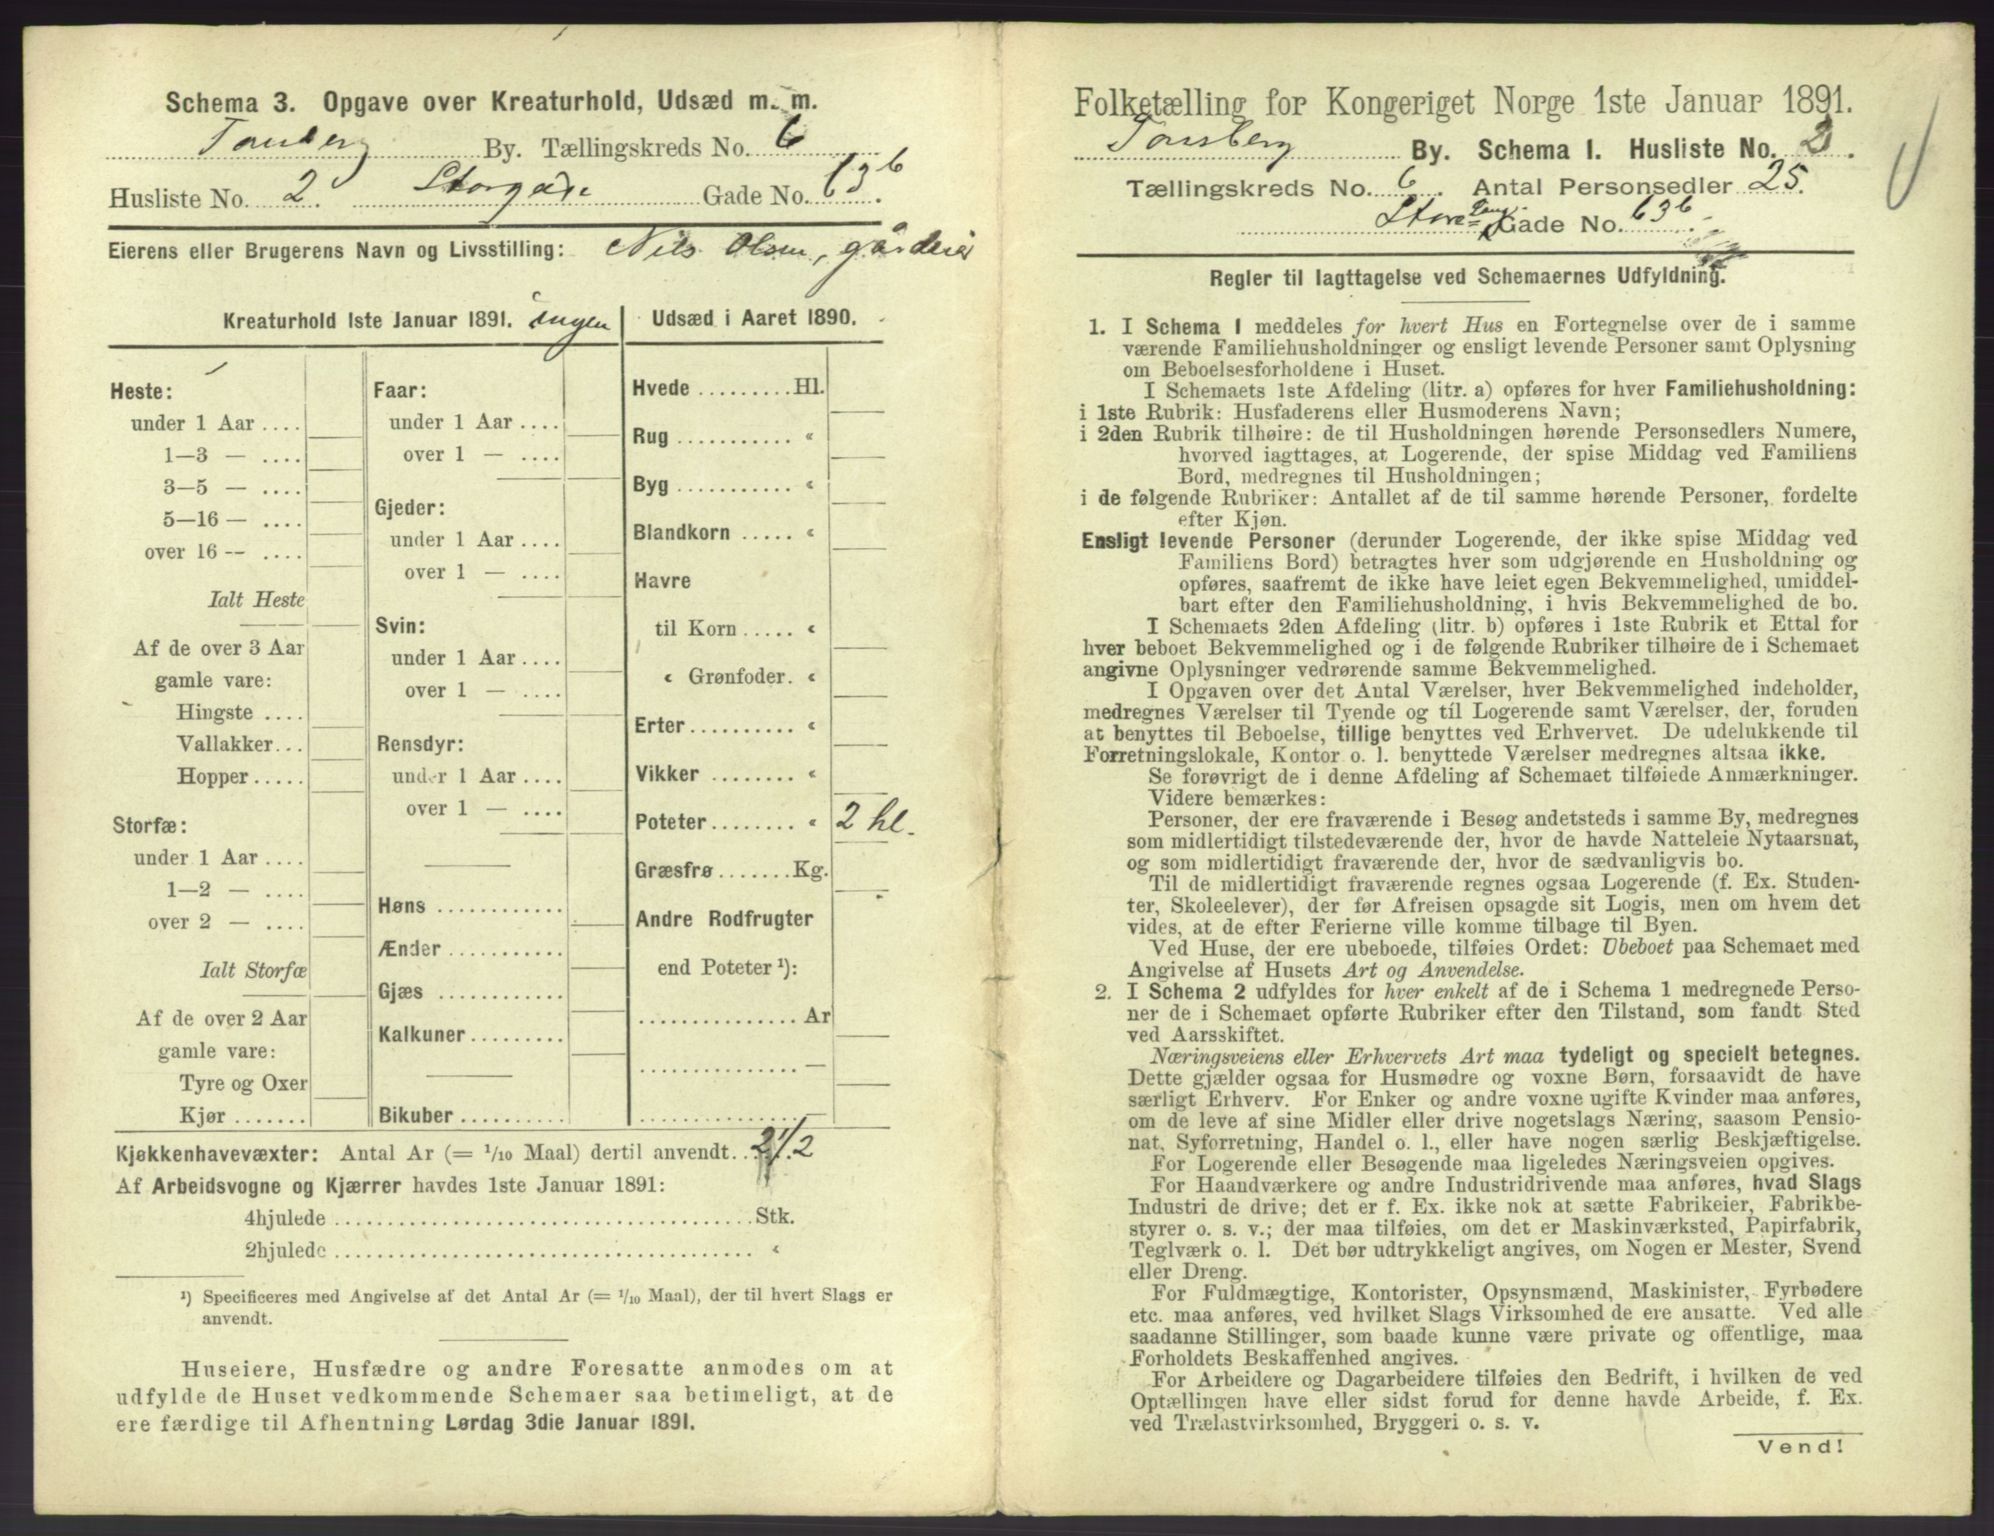 Schema 3. Opgave over Kreaturhold, Udsæd m. m.
Tønsberg By. Tællingskreds No. 6
Husliste No. 2. Storgade Gade No. 63b.
Eierens eller Brugerens Navn og Livsstilling: Nils Olsen, gårdeier
Kreaturhold 1ste Januar 1891. ingen
Heste:
under 1 Aar ....
1—3 — ....
3—5 — ....
5—16 — ....
over 16 — ....
Ialt Heste
Af de over 3 Aar
gamle vare:
Hingste ....
Vallakker...
Hopper .....
Storfæ:
under 1 Aar ....
1—2 — ....
over 2 — ....
Ialt Storfæ
Af de over 2 Aar
gamle vare:
Tyre og Oxer
Kjør .......
Faar:
under 1 Aar ....
over 1 — ....
Gjeder:
under 1 Aar ....
over 1 — ....
Svin:
under 1 Aar ....
over 1 — ....
Rensdyr:
under 1 Aar ....
over 1 — ....
Høns ............
Ænder ...........
Gjæs ............
Kalkuner .........
Bikuber ..........
Udsæd i Aaret 1890.
Hvede ......... Hl.
Rug ........... «
Byg ........... «
Blandkorn ..... «
Havre
til Korn ..... «
« Grønfoder. «
Erter .......... «
Vikker ........ «
Poteter ........ « 2 hl.
Græsfrø ....... Kg.
Andre Rodfrugter
end Poteter ¹):
............... Ar
............... —
............... —
Kjøkkenhavevæxter: Antal Ar (= 1/10 Maal) dertil anvendt.. 2 1/2
Af Arbeidsvogne og Kjærrer havdes 1ste Januar 1891:
4hjulede ........................................ Stk.
2hjulede ........................................ «
¹) Specificeres med Angivelse af det Antal Ar (= 1/10 Maal), der til hvert Slags er
anvendt.
Huseiere, Husfædre og andre Foresatte anmodes om at
udfylde de Huset vedkommende Schemaer saa betimeligt, at de
ere færdige til Afhentning Lørdag 3die Januar 1891.
Folketælling for Kongeriget Norge 1ste Januar 1891.
Tønsberg By. Schema 1. Husliste No. 2.
Tællingskreds No. 6. Antal Personsedler 25.
Store Gade No. 63b.
Regler til Iagttagelse ved Schemaernes Udfyldning.
1. I Schema 1 meddeles for hvert Hus en Fortegnelse over de i samme
værende Familiehusholdninger og ensligt levende Personer samt Oplysning
om Beboelsesforholdene i Huset.
I Schemaets 1ste Afdeling (litr. a) opføres for hver Familiehusholdning:
i 1ste Rubrik: Husfaderens eller Husmoderens Navn;
i 2den Rubrik tilhøire: de til Husholdningen hørende Personsedlers Numere,
hvorved iagttages, at Logerende, der spise Middag ved Familiens
Bord, medregnes til Husholdningen;
i de følgende Rubriker: Antallet af de til samme hørende Personer, fordelte
efter Kjøn.
Ensligt levende Personer (derunder Logerende, der ikke spise Middag ved
Familiens Bord) betragtes hver som udgjørende en Husholdning og
opføres, saafremt de ikke have leiet egen Bekvemmelighed, umiddel-
bart efter den Familiehusholdning, i hvis Bekvemmelighed de bo.
I Schemaets 2den Afdeling (litr. b) opføres i 1ste Rubrik et Ettal for
hver beboet Bekvemmelighed og i de følgende Rubriker tilhøire de i Schemaet
angivne Oplysninger vedrørende samme Bekvemmelighed.
I Opgaven over det Antal Værelser, hver Bekvemmelighed indeholder,
medregnes Værelser til Tyende og til Logerende samt Værelser, der, foruden
at benyttes til Beboelse, tillige benyttes ved Erhvervet. De udelukkende til
Forretningslokale, Kontor o. l. benyttede Værelser medregnes altsaa ikke.
Se forøvrigt de i denne Afdeling af Schemaet tilføiede Anmærkninger.
Videre bemærkes:
Personer, der ere fraværende i Besøg andetsteds i samme By, medregnes
som midlertidigt tilstedeværende der, hvor de havde Natteleie Nytaarsnat,
og som midlertidigt fraværende der, hvor de sædvanligvis bo.
Til de midlertidigt fraværende regnes ogsaa Logerende (f. Ex. Studen-
ter, Skoleelever), der før Afreisen opsagde sit Logis, men om hvem det
vides, at de efter Ferierne ville komme tilbage til Byen.
Ved Huse, der ere ubeboede, tilføies Ordet: Ubeboet paa Schemaet med
Angivelse af Husets Art og Anvendelse.
2. I Schema 2 udfyldes for hver enkelt af de i Schema 1 medregnede Perso-
ner de i Schemaet opførte Rubriker efter den Tilstand, som fandt Sted
ved Aarsskiftet.
Næringsveiens eller Erhvervets Art maa tydeligt og specielt betegnes.
Dette gjælder ogsaa for Husmødre og voxne Børn, forsaavidt de have
særligt Erhverv. For Enker og andre voxne ugifte Kvinder maa anføres,
om de leve af sine Midler eller drive nogetslags Næring, saasom Pensio-
nat, Syforretning, Handel o. l., eller have nogen særlig Beskjæftigelse.
For Logerende eller Besøgende maa ligeledes Næringsveien opgives.
For Haandværkere og andre Industridrivende maa anføres, hvad Slags
Industri de drive; det er f. Ex. ikke nok at sætte Fabrikeier, Fabrikbe-
styrer o. s. v.; der maa tilføies, om det er Maskinværksted, Papirfabrik,
Teglværk o. l. Det bør udtrykkeligt angives, om Nogen er Mester, Svend
eller Dreng.
For Fuldmægtige, Kontorister, Opsynsmænd, Maskinister, Fyrbødere
etc. maa anføres, ved hvilket Slags Virksomhed de ere ansatte. Ved alle
saadanne Stillinger, som baade kunne være private og offentlige, maa
Forholdets Beskaffenhed angives.
For Arbeidere og Dagarbeidere tilføies den Bedrift, i hvilken de ved
Optællingen have eller sidst forud for denne havde Arbeide, f. Ex.
ved Trælastvirksomhed, Bryggeri o. s. v.
Vend!